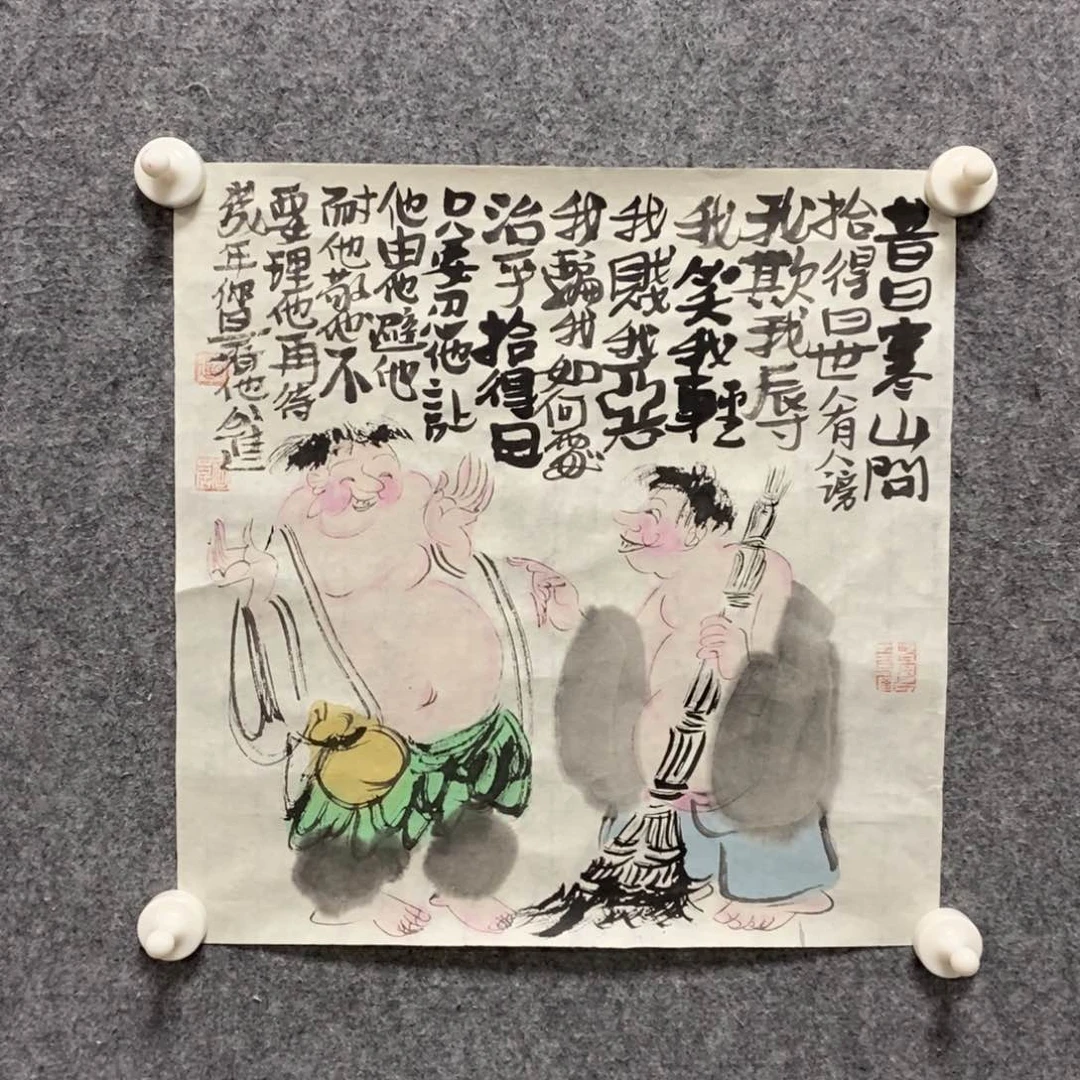 昔日寒山問
拾得曰世人有人谤
我欺我辱
我笑我輕
我賤我恶
我騙我如何處
治乎拾得曰
只要忍他让
他由他避他
耐他敬他不
要理他再待
幾年你且看他